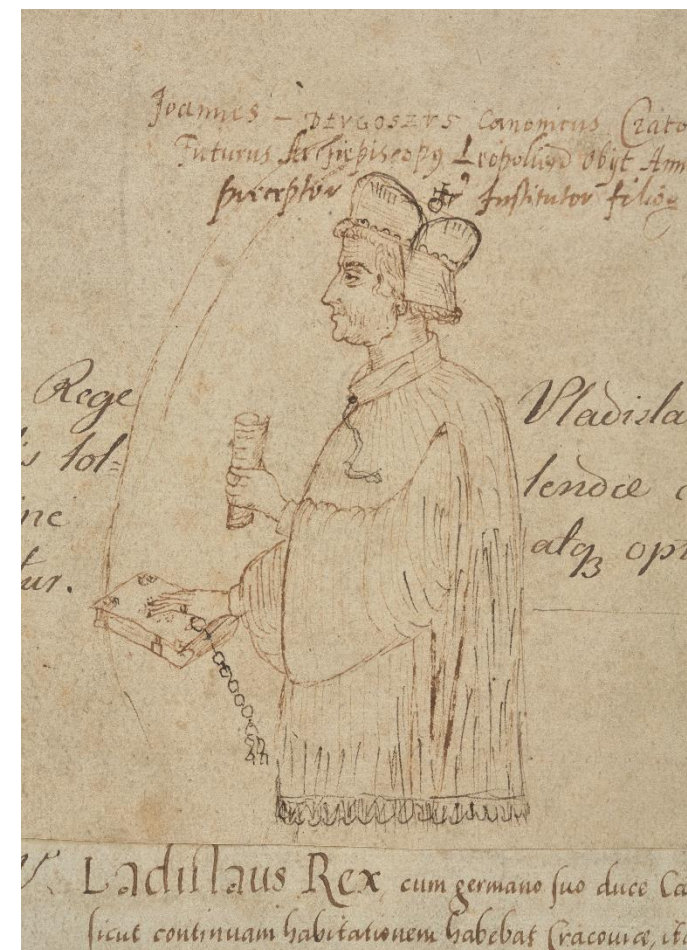 Joannes – DŁVGOSZVS Canonicus Craco
Futurus Archiepiscopus Leopolien̄ Obijt Ann
præceptor et Institutor filior
Rege
is tol=
ine
tur.
Vladisla
lendæ
atqȝ opt
V. Ladislaus Rex cum germano suo duce Ca
sicut continuam habitationem habebat Cracoviæ, ita